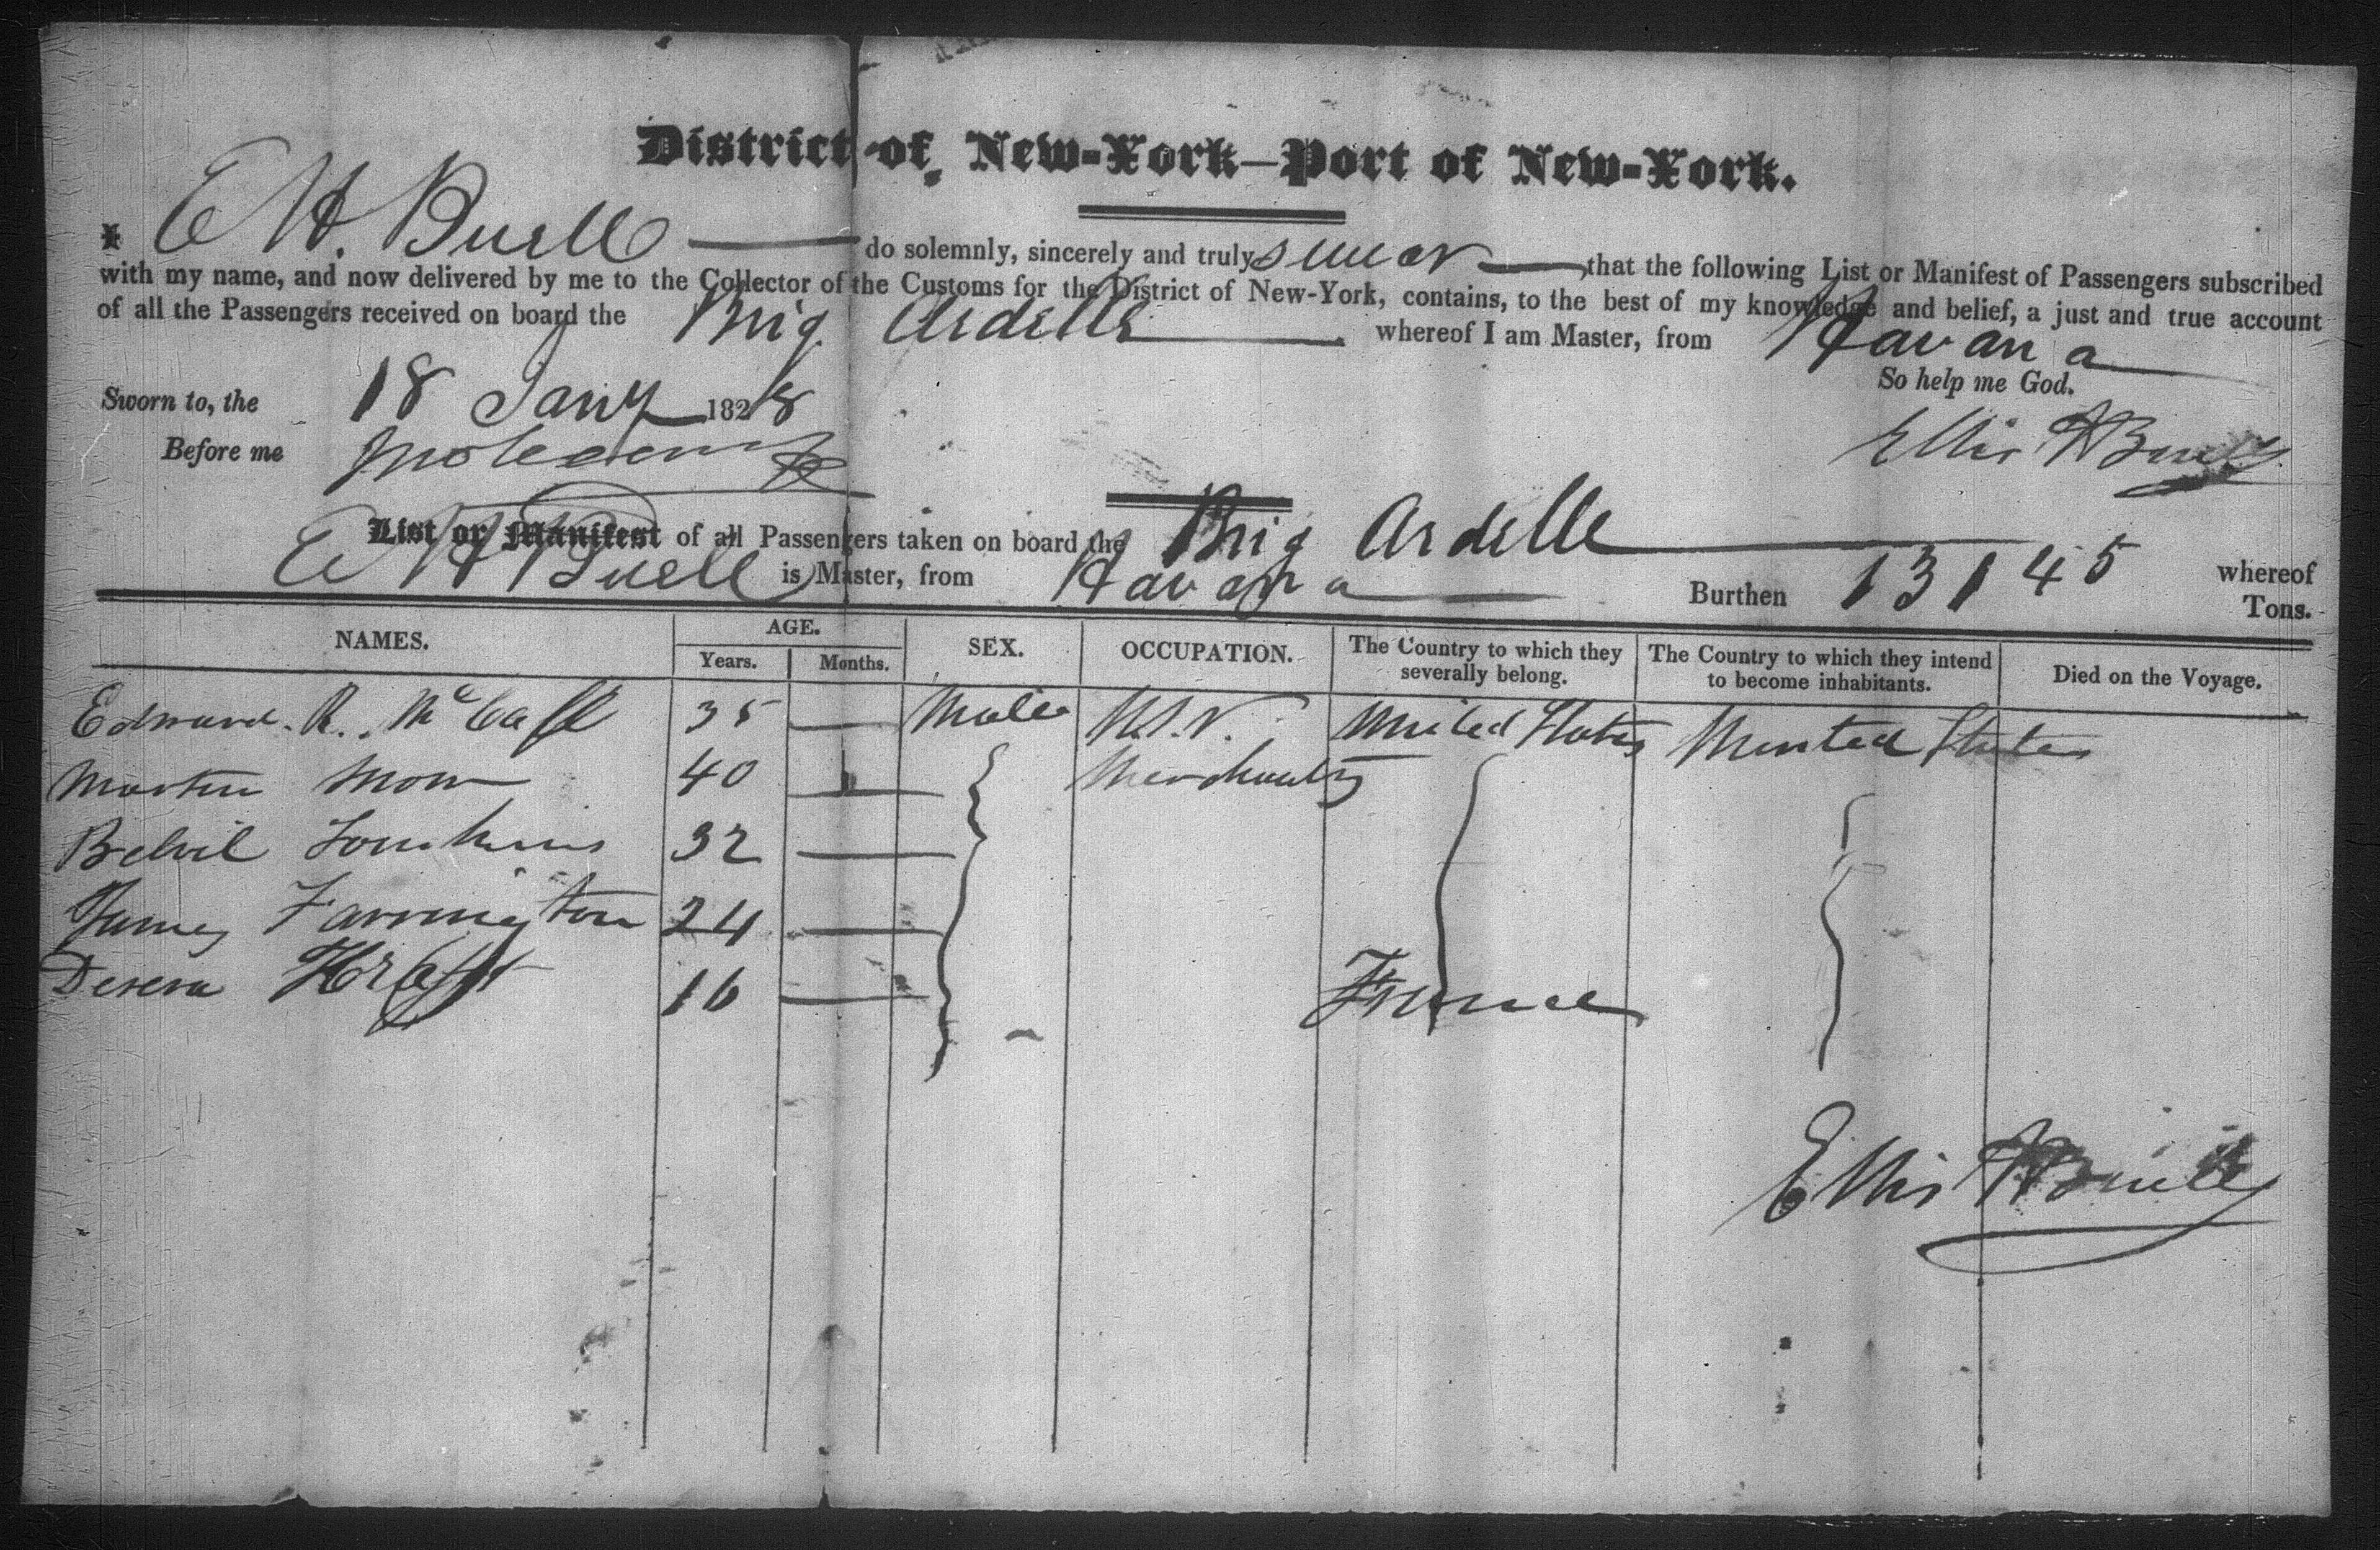 District of New-York—Port of New-York.
I E H. Buell do solemnly, sincerely and truly swear that the following List or Manifest of Passengers subscribed
with my name, and now delivered by me to the Collector of the Customs for the District of New-York, contains, to the best of my knowledge and belief, a just and true account
of all the Passengers received on board the Brig Ardelle whereof I am Master, from Havana
So help me God.
Sworn to, the 18 Jany 1828
Ellis H Buell
Before me
List or Manifest of all Passengers taken on board the Brig Ardelle whereof
E H Buell is Master, from Havana Burthen 131 45 Tons.
NAMES. AGE. SEX. OCCUPATION. The Country to which they severally belong. The Country to which they intend to become inhabitants. Died on the Voyage.
Years. Months.
Edward. R. 35 Male U.S.N. United States United States
40 Merchants
32
James Farrington 24
16 France
Ellis H Buell